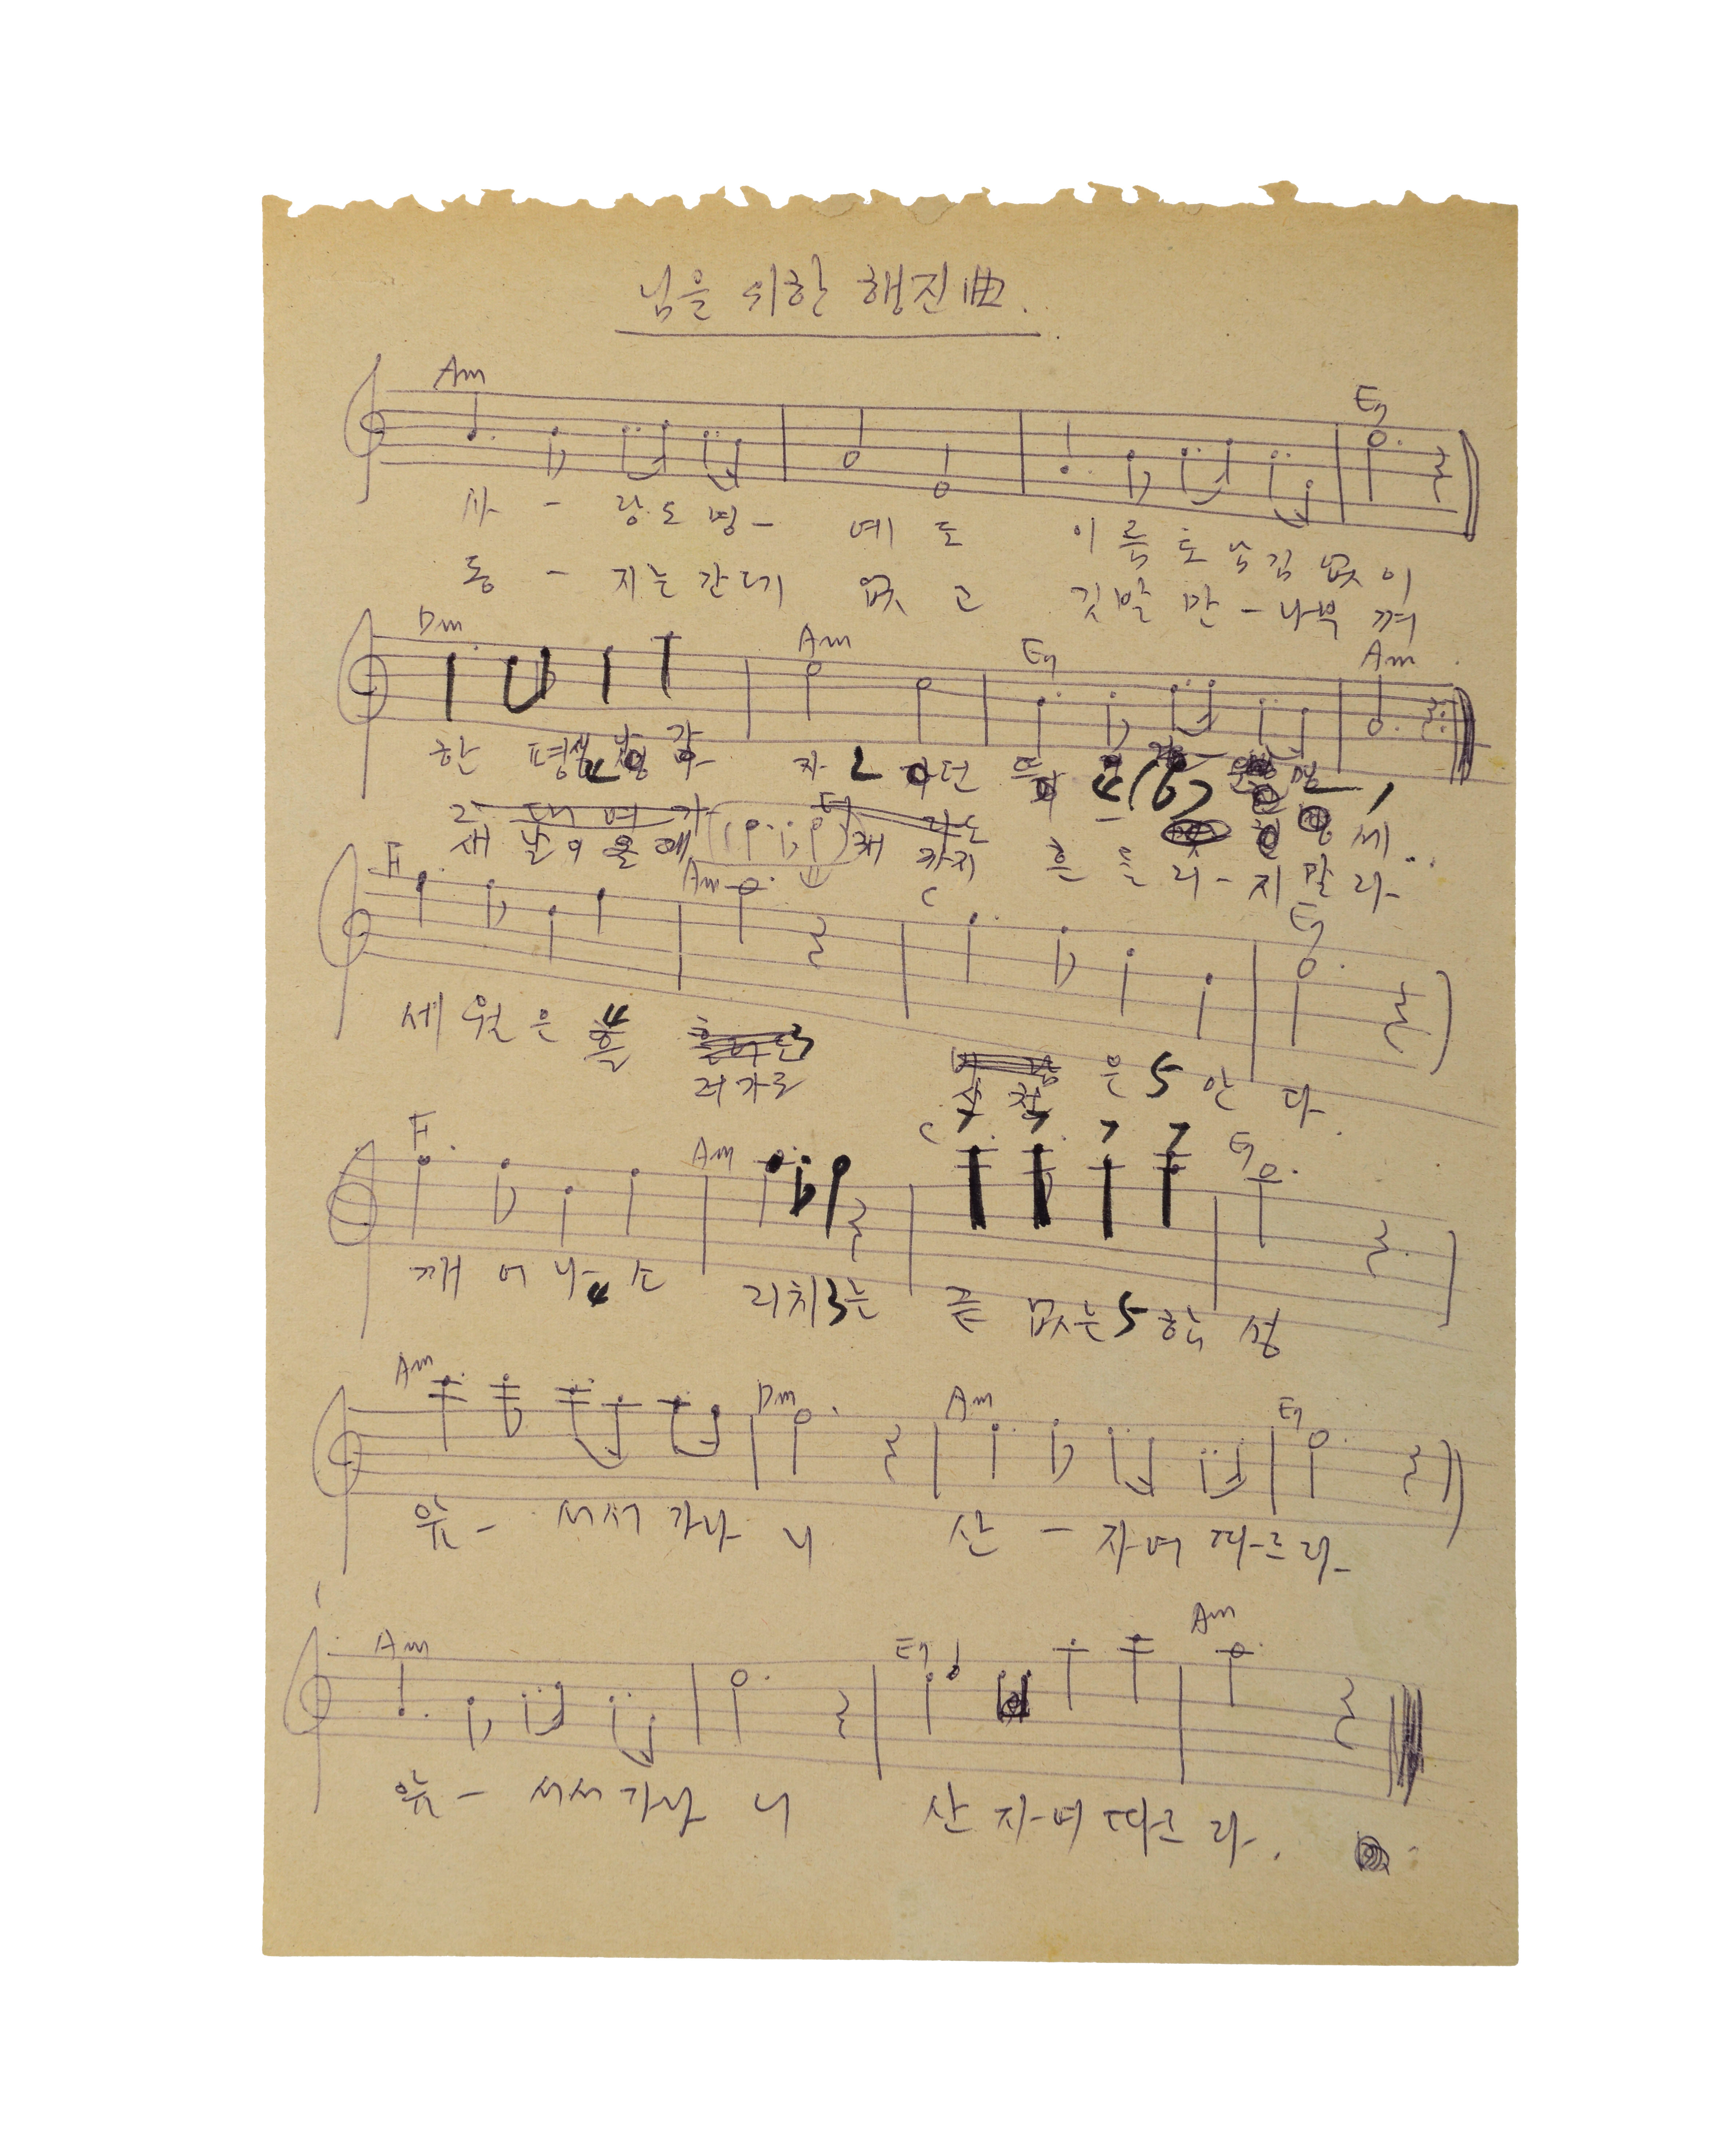 님을 위한 행진曲.
Am E7
사 - 랑도 명 - 예 도 이 름 도 남김 없이
동 - 지는 간데 없 고 깃발 만 - 나부 껴
Dm Am E7 Am
한 평생 나가 자 던 뜨 맹 세
새 날이 올 때 까지 흔 들 리 - 지 말 라
F Am C E7
세 월은 흘 러가도 산 천 은 안 다
F Am C E7
깨 어 나 소 리치는 끝 없는 함 성
Am Dm Am E7
앞 - 서서 가나 니 산 - 자여 따르라
Am E7 Am
앞 - 서서 가나 니 산 자여 따르 라.